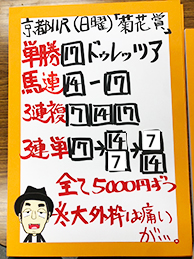 京都11R(日曜)「菊花賞」
単勝 17 ドゥレッツア
馬連 4-17
3連複 7 14 17
3連単 17→14 7→7 14
全て5000円ずつ
※大外枠は痛い
が…。